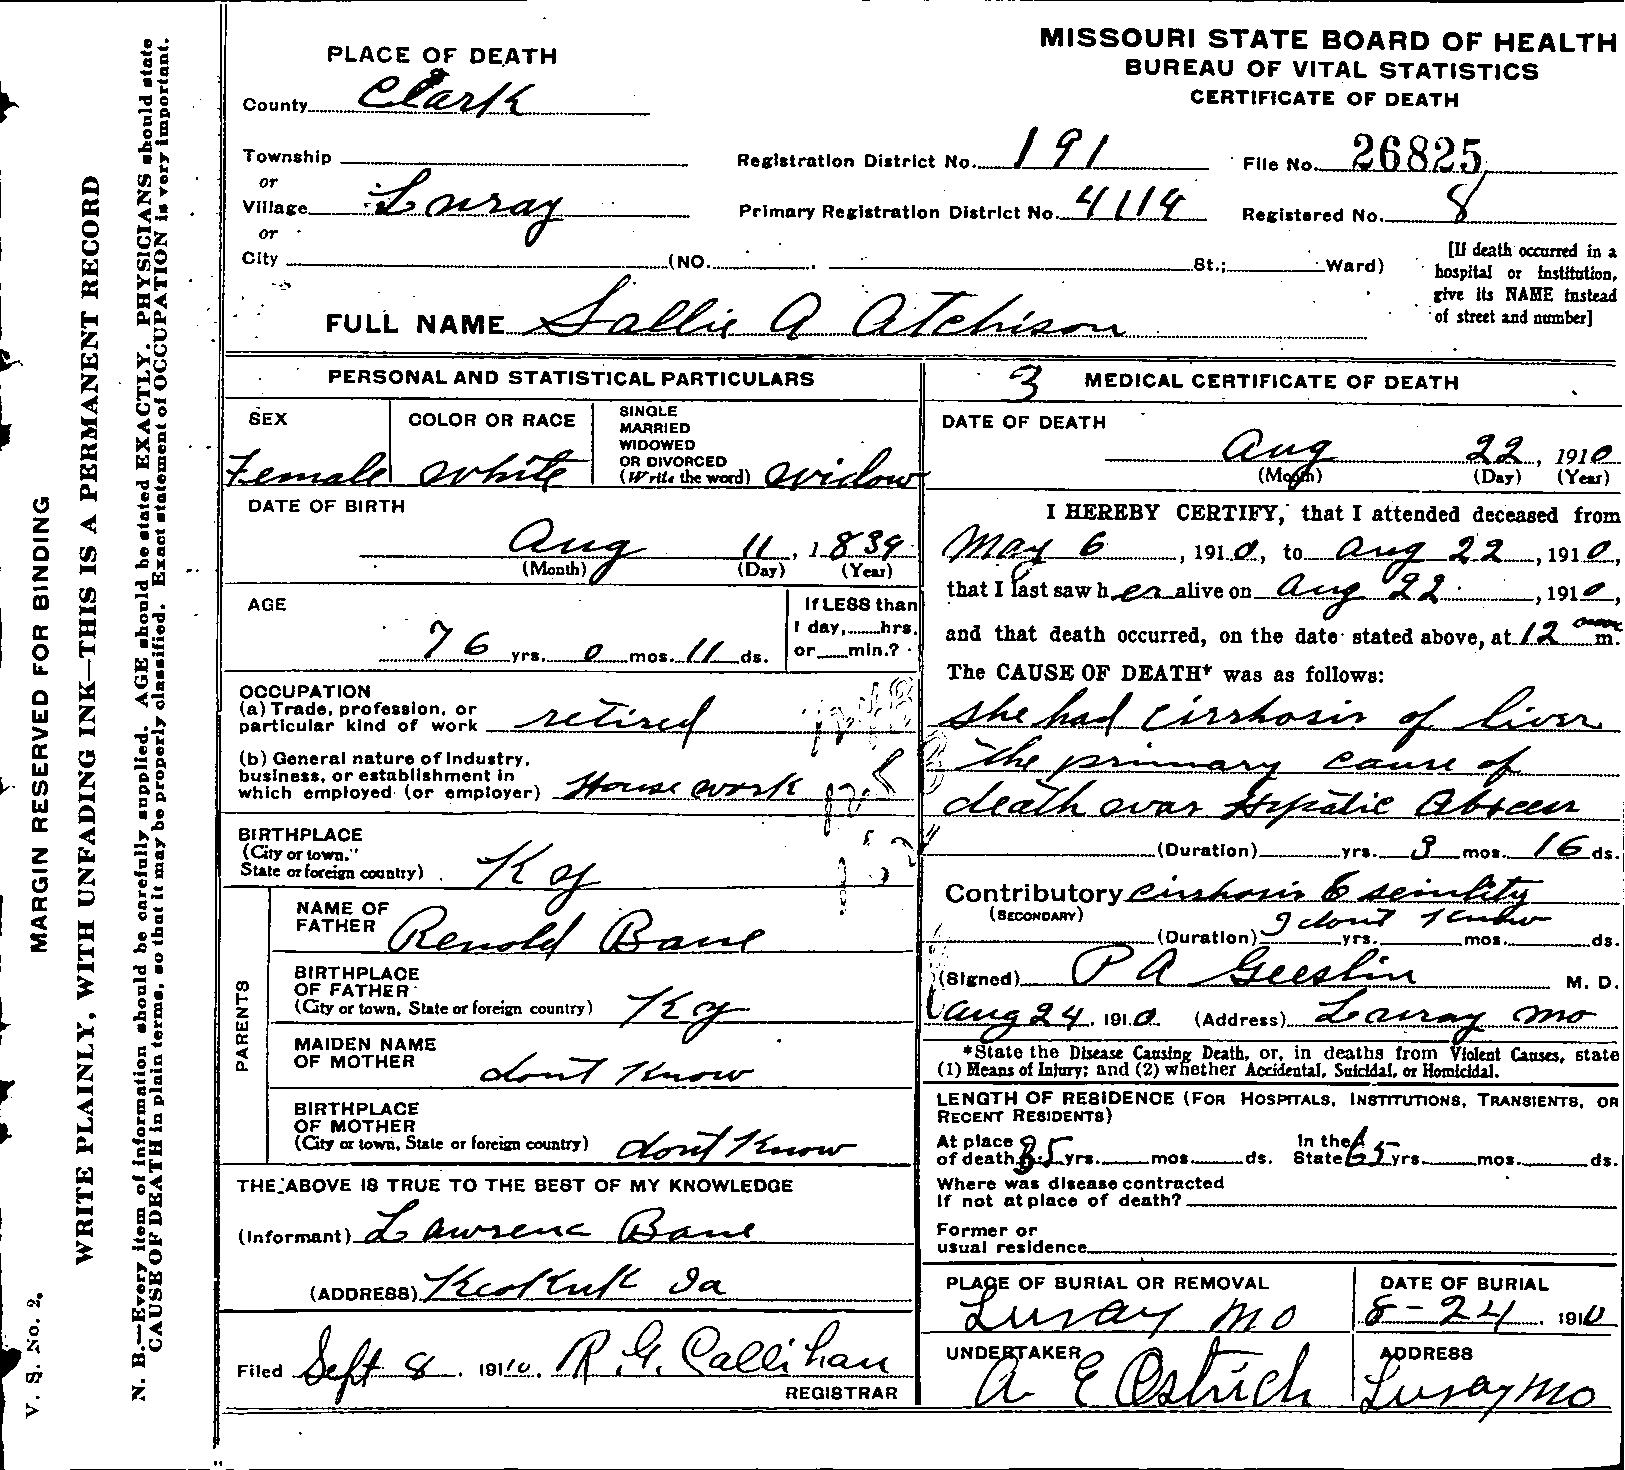 MISSOURI STATE BOARD OF HEALTH
BUREAU OF VITAL STATISTICS
CERTIFICATE OF DEATH
PLACE OF DEATH
County Clark
Township
or
Village Luray
or
City (NO. St.; Ward)
Registration District No. 191
File No. 26825
Primary Registration District No. 4114
Registered No. 8
[If death occurred in a
hospital or institution,
give its NAME instead
of street and number]
FULL NAME Sallie A Atchison
PERSONAL AND STATISTICAL PARTICULARS
SEX
Female
COLOR OR RACE
white
SINGLE
MARRIED
WIDOWED
OR DIVORCED
(Write the word) widow
DATE OF BIRTH
Aug 11, 1839
(Month) (Day) (Year)
AGE
76 yrs. 0 mos. 11 ds.
If LESS than
1 day, hrs.
or min.?
OCCUPATION
(a) Trade, profession, or
particular kind of work retired
(b) General nature of Industry,
business, or establishment in
which employed (or employer) House work
BIRTHPLACE
(City or town,
State or foreign country) Ky
PARENTS
NAME OF
FATHER Renold Bane
BIRTHPLACE
OF FATHER
(City or town, State or foreign country) Ky
MAIDEN NAME
OF MOTHER dont Know
BIRTHPLACE
OF MOTHER
(City or town, State or foreign country) dont Know
THE ABOVE IS TRUE TO THE BEST OF MY KNOWLEDGE
(Informant) Lawrenc Bane
(ADDRESS) Keokuk Ia
Filed Sept 8, 1910. R. G. Callihan
REGISTRAR
3 MEDICAL CERTIFICATE OF DEATH
DATE OF DEATH
Aug 22, 1910
(Month) (Day) (Year)
I HEREBY CERTIFY, that I attended deceased from
May 6, 1910, to Aug 22, 1910,
that I last saw her alive on Aug 22, 1910,
and that death occurred, on the date stated above, at 12 m.
The CAUSE OF DEATH* was as follows:
she had cirrhosis of liver
the primary cause of
death was Hepatic Abscess
(Duration) yrs. 3 mos. 16 ds.
Contributory cirrhosis & seinlity
(SECONDARY)
(Duration) I dont Know yrs. mos. ds.
(Signed) P A Geeslin M. D.
Aug 24, 1910. (Address) Luray Mo
*State the Disease Causing Death, or, in deaths from Violent Causes, state
(1) Means of Injury; and (2) whether Accidental, Suicidal, or Homicidal.
LENGTH OF RESIDENCE (FOR HOSPITALS, INSTITUTIONS, TRANSIENTS, OR
RECENT RESIDENTS)
At place In the
of death yrs. mos. ds. State 65 yrs. mos. ds.
Where was disease contracted
if not at place of death?
Former or
usual residence
PLACE OF BURIAL OR REMOVAL
Luray Mo
DATE OF BURIAL
8-24, 1910
UNDERTAKER
A E Ostrich
ADDRESS
Luray Mo
MARGIN RESERVED FOR BINDING
WRITE PLAINLY, WITH UNFADING INK—THIS IS A PERMANENT RECORD
N. B.—Every item of information should be carefully supplied. AGE should be stated EXACTLY. PHYSICIANS should state
CAUSE OF DEATH in plain terms, so that it may be properly classified. Exact statement of OCCUPATION is very important.
V. S. No. 2.